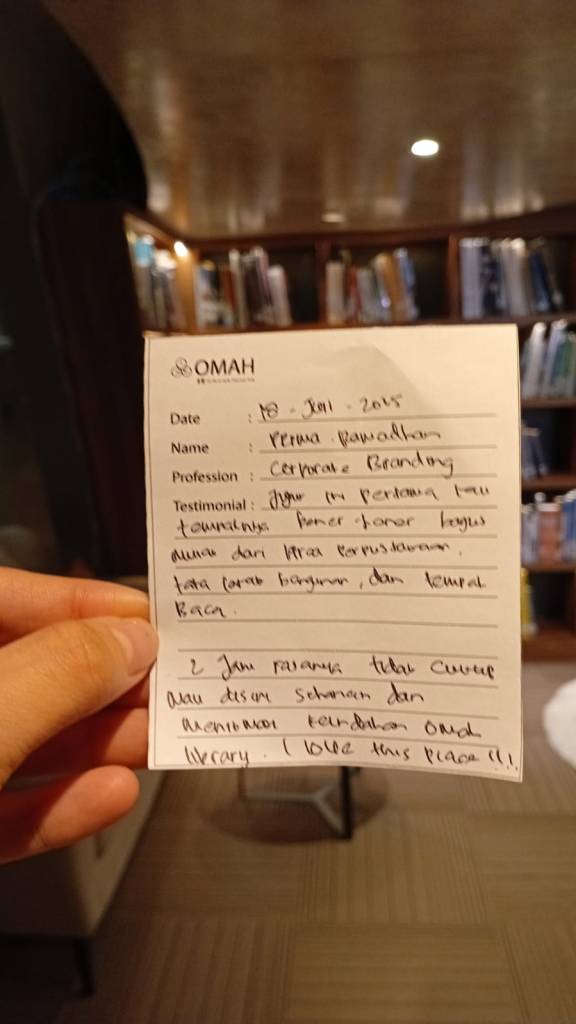 OMAH
Date : 18 - Juni - 2025
Name : Perma Ramadhan
Profession : Corporate Branding
Testimonial : Jujur ini pertama kali
tempatnya bener-bener bagus
mulai dari perpustakaan,
tata letak bangunan, dan tempat
Baca.
2 Jam rasanya tidak cukup
mau disini seharian dan
menikmati keindahan Omah
library. I love this place!!!